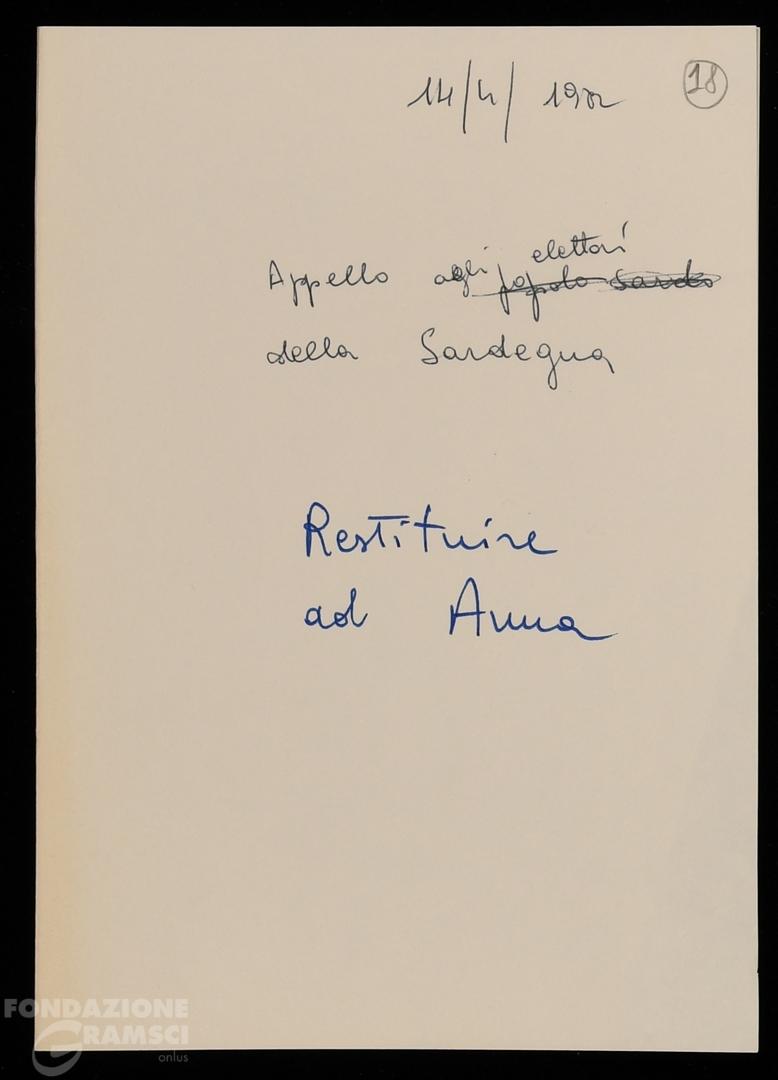 18
14/4/
elettori
Appello agli popolo sardo
della Sardegna
Restituire
ad Anna
FONDAZIONE
GRAMSCI
onlus